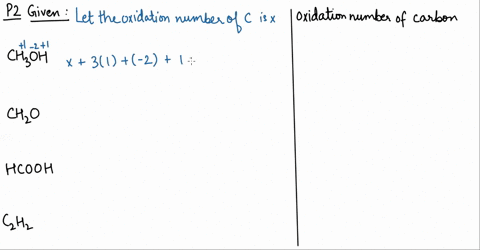 P2 Given: Let the oxidation number of C is x
Oxidation number of carbon
+1 -2 +1
CH₃OH x + 3(1) + (-2) + 1 =
CH₂O
HCOOH
C₂H₂